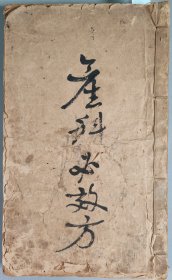 産科必效方